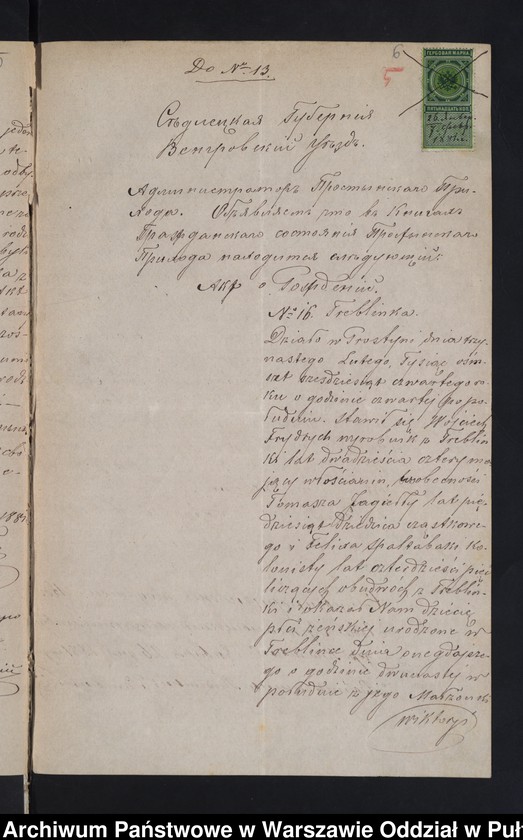 До № 13.
6
5
ГЕРБОВАЯ МАРКА
ПЯТНАДЦАТЬ КОП.
Сѣдлецкая Губернія
Венгровскій Уѣздъ.
Администраторъ Простынскаго При-
хода. Объявляетъ что въ Книгахъ
Гражданскаго состоянія Простынскаго
Прихода находится слѣдующій:
Актъ о Рожденіи.
№ 16. Treblinka.
Działo w Prostyni dnia trzy
nastego Lutego, Tysiąc osm-
set sześdziesiąt czwartego ro-
ku o godzinie czwarty po po
łudniu. Stawił się Wojciech
Frydrych wyrobnik z Treblin
ki lat dwadzieścia cztery ma
jący włościanin, w obecności
Tomasza Jagiełły lat pię-
dziesiąt dziedzica cząstkowe-
go i Felixa Ko-
lonisty lat czterdzieści pięć
liczących obudwóch z Treblin-
ki i okazał Nam dziecię
płci żeńskiej urodzone w
Treblince dnia onegdajsze-
go o godzinie dwunastej w
południe z jego Małżonki
Wiktoryi
Archiwum Państwowe w Warszawie Oddział w Puł